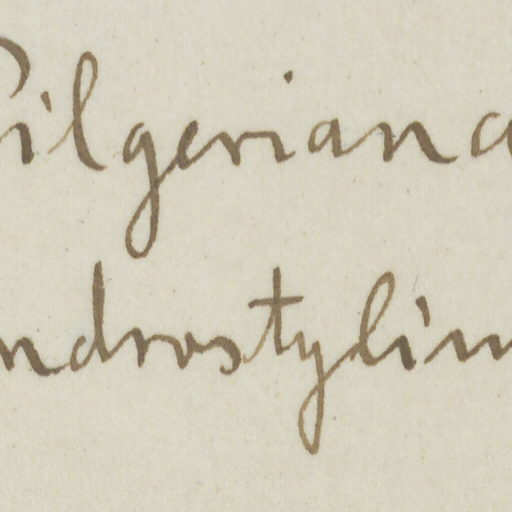 Pilgeriana
ndrostylin